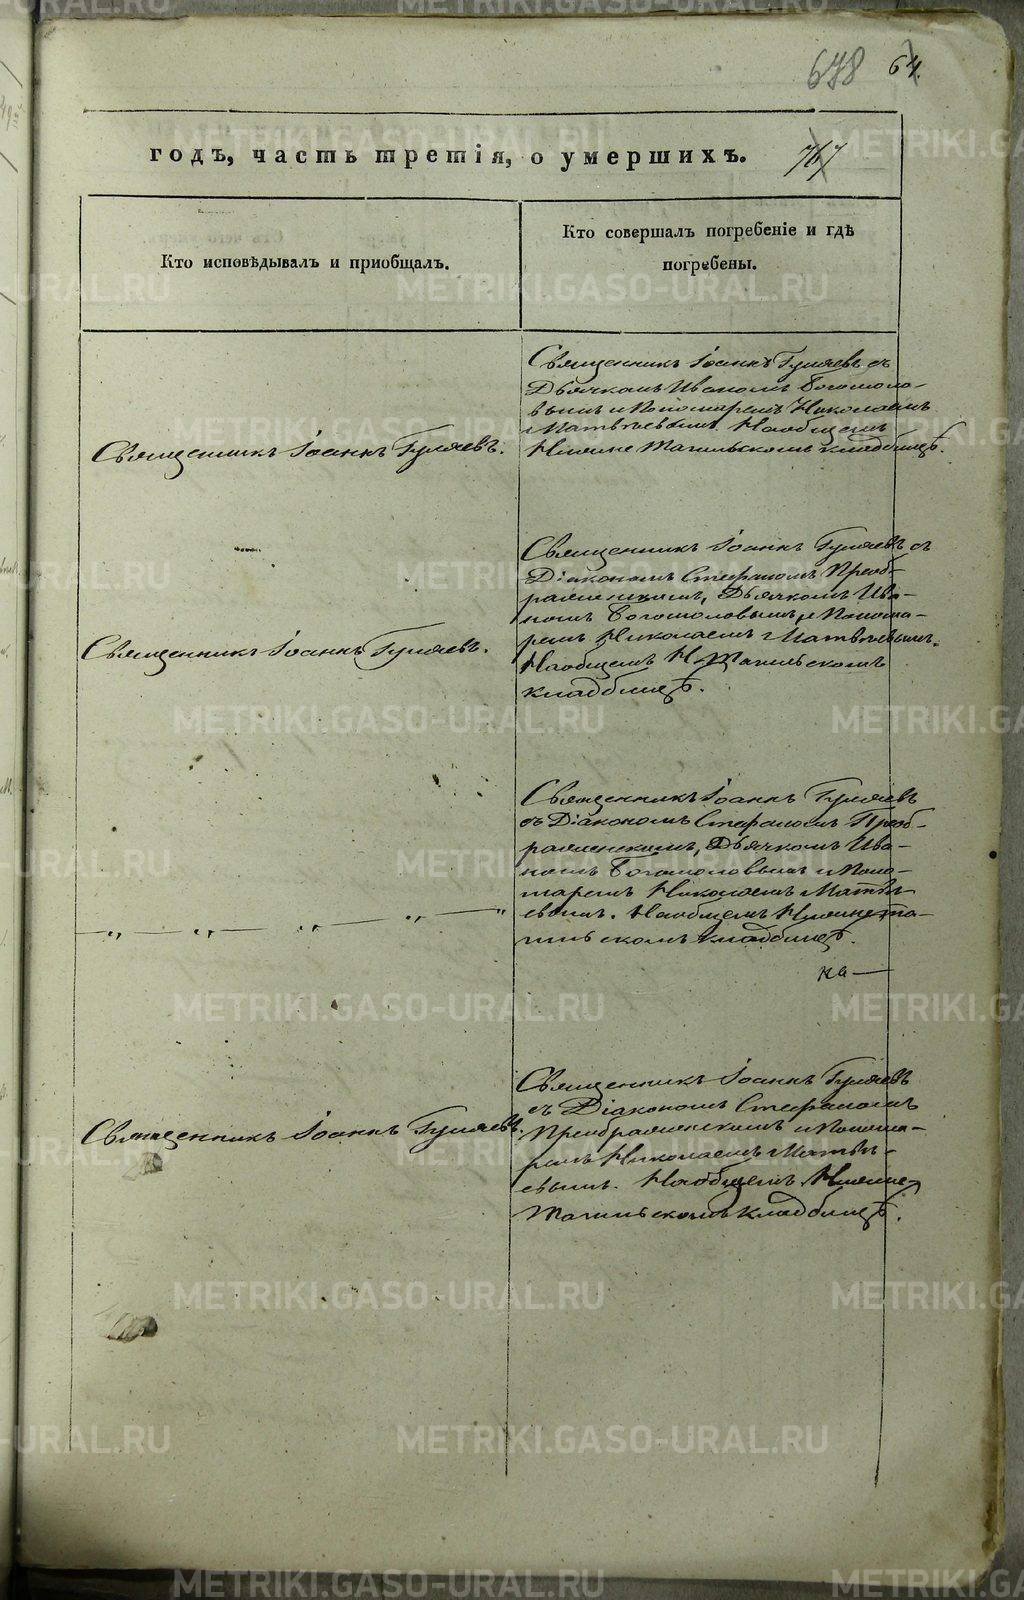 678 64.
годъ, часть третія, о умершихъ. 767
Кто исповѣдывалъ и приобщалъ.
Кто совершалъ погребеніе и гдѣ
погребены.
Священникъ Іоаннъ Гуляевъ.
Священникъ Іоаннъ Гуляевъ съ
Дьячкомъ Иваномъ Богомоло-
вымъ и Пономаремъ Николаемъ
Матвѣевымъ. На общемъ
Нижне Тагильскомъ кладбищѣ.
Священникъ Іоаннъ Гуляевъ.
Священникъ Іоаннъ Гуляевъ съ
Діакономъ Стефаномъ Преоб-
раженскимъ, Дьячкомъ Ива-
номъ Богомоловымъ, и Понома-
ремъ Николаемъ Матвѣевымъ.
На общемъ Н. Тагильскомъ
кладбищѣ.
— „ — „ — „ — „ — „
Священникъ Іоаннъ Гуляевъ
съ Діакономъ Стефаномъ Преоб-
раженскимъ, Дьячкомъ Ива-
номъ Богомоловымъ и Поно-
маремъ Николаемъ Матвѣ-
евымъ. На общемъ Нижнета-
гильскомъ кладбищѣ.
на—
Священникъ Іоаннъ Гуляевъ.
Священникъ Іоаннъ Гуляевъ
съ Діакономъ Стефаномъ
Преображенскимъ и Понома-
ремъ Николаемъ Матвѣ-
евымъ. На общемъ Нижне-
Тагильскомъ кладбищѣ.
METRIKI.GASO-URAL.RU